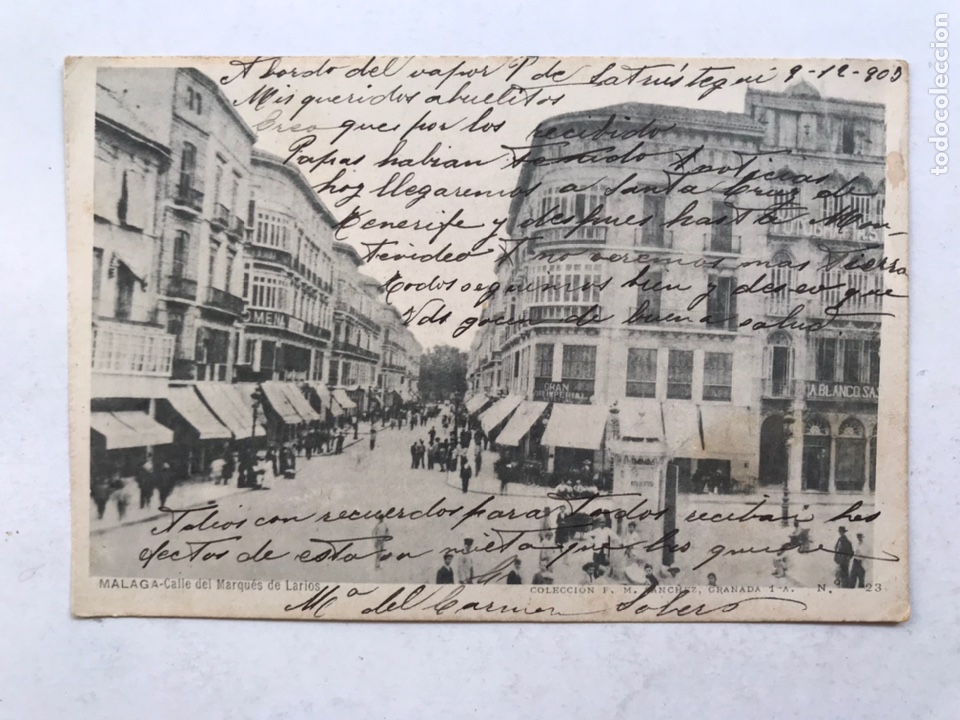 A bordo del vapor P. de Satrústegui 9-12-905
Mis queridos abuelitos
Creo que por los recibido
Papas habian tenido noticias
hoy llegaremos a Santa Cruz de
Tenerife y despues hasta Mon-
tevideo no veremos mas tierra
todos seguimos bien y deseo que
Vds gocen de buena salud
OMENA
GRAN
IMPERIAL
A.BLANCO.SA
Adios con recuerdos para todos reciban los
efectos de esta su nieta que les quiere
MALAGA-Calle del Marqués de Larios
COLECCION F. M. SANCHEZ, GRANADA 1-A. N. 23
Mª del Carmen Sobero
todocoleccion